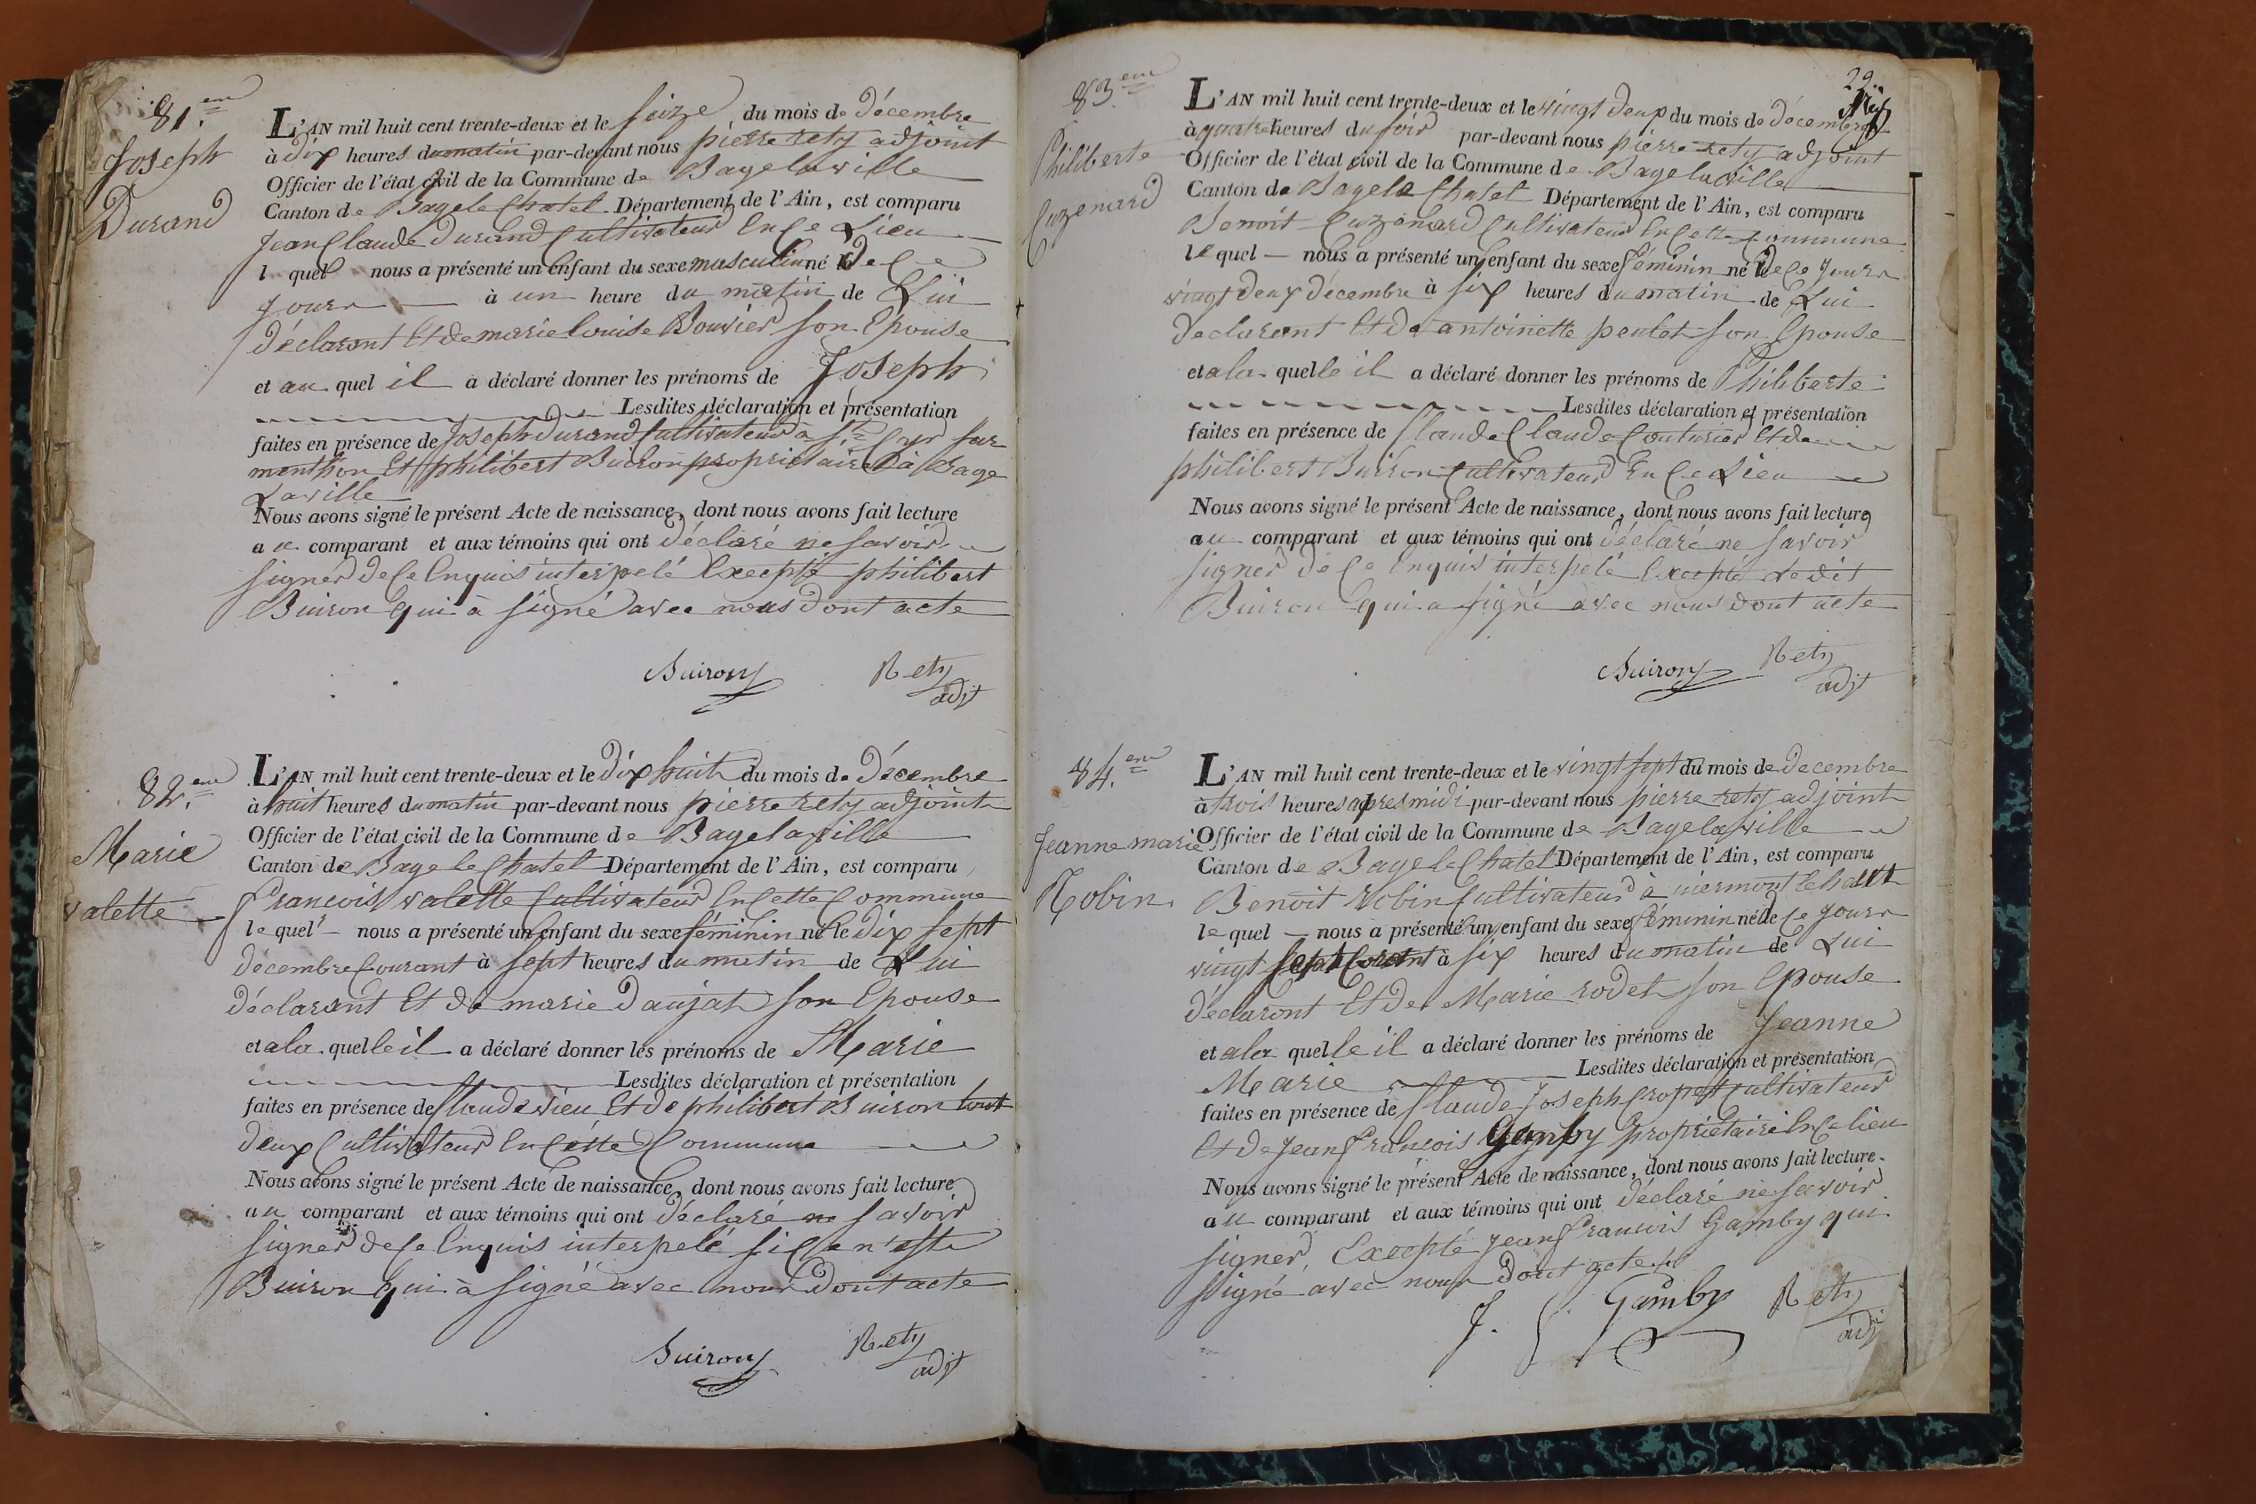 81.em
Joseph
Durand
L'AN mil huit cent trente-deux et le seize du mois de décembre
à dix heures du matin par-devant nous pierre rety adjoint
Officier de l'état civil de la Commune de Bagelaville
Canton de Bage le Chatel Département de l'Ain, est comparu
Jean Claude Durand Cultivateur En Ce Lieu
l quel nous a présenté un enfant du sexe masculin né de Ce
jour à un heure du matin de Lui
déclarant Et de marie Louise Bouvier son Epouse
et au quel il a déclaré donner les prénoms de Joseph
Lesdites déclaration et présentation
faites en présence de Joseph Durand Cultivateur à St Cyr sur
menthon Et philibert Buiron propriétaire à Bage
Laville
Nous avons signé le présent Acte de naissance, dont nous avons fait lecture
au comparant et aux témoins qui ont déclaré ne savoir
signer de Ce Enquis interpelé Excepté philibert
Buiron qui à signé avec nous dont acte
Buiron Rety
adjt
82.em
Marie
valette
L'AN mil huit cent trente-deux et le dix huit du mois de Décembre
à huit heures du matin par-devant nous pierre rety adjoint
Officier de l'état civil de la Commune de Bagelaville
Canton de Bage le Chatel Département de l'Ain, est comparu
Francois valette Cultivateur En Cette Commune
le quel nous a présenté un enfant du sexe féminin né le dix sept
décembre Courant à sept heures du matin de Lui
déclarant Et de marie Daujat son Epouse
et a la quelle il a déclaré donner les prénoms de Marie
Lesdites déclaration et présentation
faites en présence de Claude vieu Et de philibert Buiron tout
deux Cultivateur En Cette Commune
Nous avons signé le présent Acte de naissance, dont nous avons fait lecture
au comparant et aux témoins qui ont déclaré ne savoir
signer de Ce Enquis interpelé si Ce n'est
Buiron qui à signé avec nous Dont acte
Buiron Rety
adjt
29.
83.em
Philiberte
Cuzenard
L'AN mil huit cent trente-deux et le vingt deux du mois de décembre
à quatre heures du soir par-devant nous pierre rety adjoint
Officier de l'état civil de la Commune de Bagelaville
Canton de Bage le Chatel Département de l'Ain, est comparu
Benoit Cuzenard Cultivateur En Cette Commune
le quel nous a présenté un enfant du sexe féminin né de Ce jour
vingt deux décembre à six heures du matin de Lui
declarant Et de antoinette penlet son Epouse
et a la quelle il a déclaré donner les prénoms de Philiberte
Lesdites déclaration et présentation
faites en présence de Claude Claude Couturier Et de
philibert Buiron Cultivateur En Ce Lieu
Nous avons signé le présent Acte de naissance, dont nous avons fait lecture
au comparant et aux témoins qui ont déclaré ne savoir
signer de Ce Enquis interpelé Excepté Ledit
Buiron qui a signé avec nous dont acte
Buiron Rety
adjt
84.em
Jeanne marie
Robin
L'AN mil huit cent trente-deux et le vingt sept du mois de decembre
à trois heures apres midi par-devant nous pierre rety adjoint
Officier de l'état civil de la Commune de Bagelaville
Canton de Bage le Chatel Département de l'Ain, est comparu
Benoit Robin Cultivateur à niermont le haut
le quel nous a présenté un enfant du sexe féminin né de Ce jour
vingt sept Corant à six heures du matin de Lui
déclaront Et de Marie rodet son Epouse
et a la quelle il a déclaré donner les prénoms de Jeanne
Marie Lesdites déclaration et présentation
faites en présence de Claude Joseph Cropet Cultivateur
Et de Jean Francois Gamby propriétaire En Ce lieu
Nous avons signé le présent Acte de naissance, dont nous avons fait lecture
au comparant et aux témoins qui ont déclaré ne savoir
signer, Excepté Jean Francois Gamby qui
signé avec nous Dont acte
J. f. Gamby Rety
adj